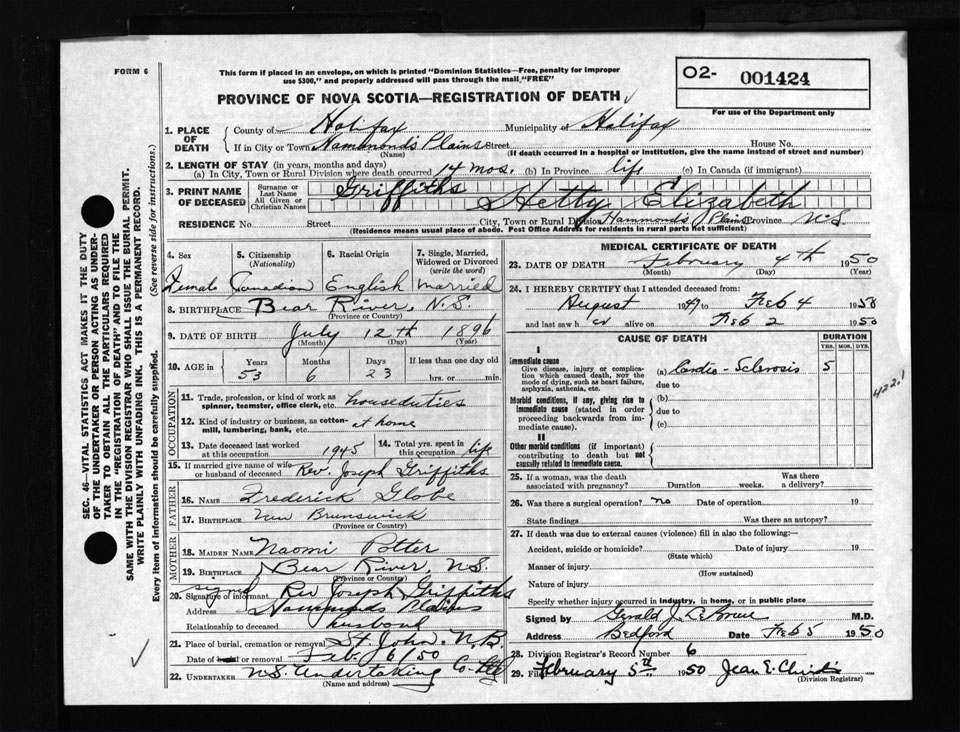 FORM 6
This form if placed in an envelope, on which is printed "Dominion Statistics—Free, penalty for improper
use $300," and properly addressed will pass through the mail "FREE"
O2- 001424
PROVINCE OF NOVA SCOTIA—REGISTRATION OF DEATH
For use of the Department only
SEC. 46—VITAL STATISTICS ACT MAKES IT THE DUTY
OF THE UNDERTAKER OR PERSON ACTING AS UNDER-
TAKER TO OBTAIN ALL THE PARTICULARS REQUIRED
IN THE "REGISTRATION OF DEATH" AND TO FILE THE
SAME WITH THE DIVISION REGISTRAR WHO SHALL ISSUE THE BURIAL PERMIT.
WRITE PLAINLY WITH UNFADING INK. THIS IS A PERMANENT RECORD.
Every item of information should be carefully supplied. (See reverse side for instructions.)
1. PLACE OF DEATH County of Halifax Municipality of Halifax
If in City or Town Hammonds Plains Street House No.
(Name) (If death occurred in a hospital or institution, give the name instead of street and number)
2. LENGTH OF STAY (in years, months and days)
(a) In City, Town or Rural Division where death occurred 14 mos. (b) In Province life (c) In Canada (if immigrant)
3. PRINT NAME OF DECEASED Surname or Last Name Griffiths
All Given or Christian Names Hetty Elizabeth
RESIDENCE No. Street City, Town or Rural Division Hammonds Plains Province N.S.
(Residence means usual place of abode. Post Office Address for residents in rural parts not sufficient)
4. Sex 5. Citizenship (Nationality) 6. Racial Origin 7. Single, Married, Widowed or Divorced (write the word)
Female Canadian English Married
8. BIRTHPLACE Bear River, N.S.
(Province or Country)
9. DATE OF BIRTH July 12th 1896
(Month) (Day) (Year)
10. AGE in Years Months Days If less than one day old
53 6 23 hrs. or min.
OCCUPATION
11. Trade, profession, or kind of work as spinner, teamster, office clerk, etc. houseduties
12. Kind of industry or business, as cotton-mill, lumbering, bank, etc. at home
13. Date deceased last worked at this occupation 1945 14. Total yrs. spent in this occupation life
15. If married give name of wife or husband of deceased Rev. Joseph Griffiths
FATHER
16. NAME Frederick Globe
17. BIRTHPLACE New Brunswick
(Province or Country)
MOTHER
18. MAIDEN NAME Naomi Potter
19. BIRTHPLACE Bear River, N.S.
(Province or Country)
signed
20. Signature of informant Rev Joseph Griffiths
Address Hammonds Plains
Relationship to deceased husband
21. Place of burial, cremation or removal St. John, N.B.
Date of burial or removal Feb. 6/50
22. UNDERTAKER N.S. Undertaking Co. Ltd
(Name and address)
MEDICAL CERTIFICATE OF DEATH
23. DATE OF DEATH February 4th 1950
(Month) (Day) (Year)
24. I HEREBY CERTIFY that I attended deceased from:
August 1949 to Feb 4 1950
and last saw her alive on Feb 2 1950
CAUSE OF DEATH DURATION
YRS. MOS. DYS.
I
Immediate cause
Give disease, injury or complication which caused death, NOT the mode of dying, such as heart failure, asphyxia, asthenia, etc.
(a) Cardio-Sclerosis 5
due to
422.1
Morbid conditions, if any, giving rise to immediate cause (stated in order proceeding backwards from immediate cause).
(b)
due to
(c)
II
Other morbid conditions (if important) contributing to death but not causally related to immediate cause.
25. If a woman, was the death associated with pregnancy? Duration weeks. Was there a delivery?
26. Was there a surgical operation? no Date of operation 19
State findings Was there an autopsy?
27. If death was due to external causes (violence) fill in also the following:—
Accident, suicide or homicide? Date of injury 19
(State which)
Manner of injury
(How sustained)
Nature of injury
Specify whether injury occurred in industry, in home, or in public place
Signed by Gerald J. M.D.
Address Bedford Date Feb 5 1950
28. Division Registrar's Record Number 6
29. Filed February 5th 1950 Jean E. Christie
(Division Registrar)